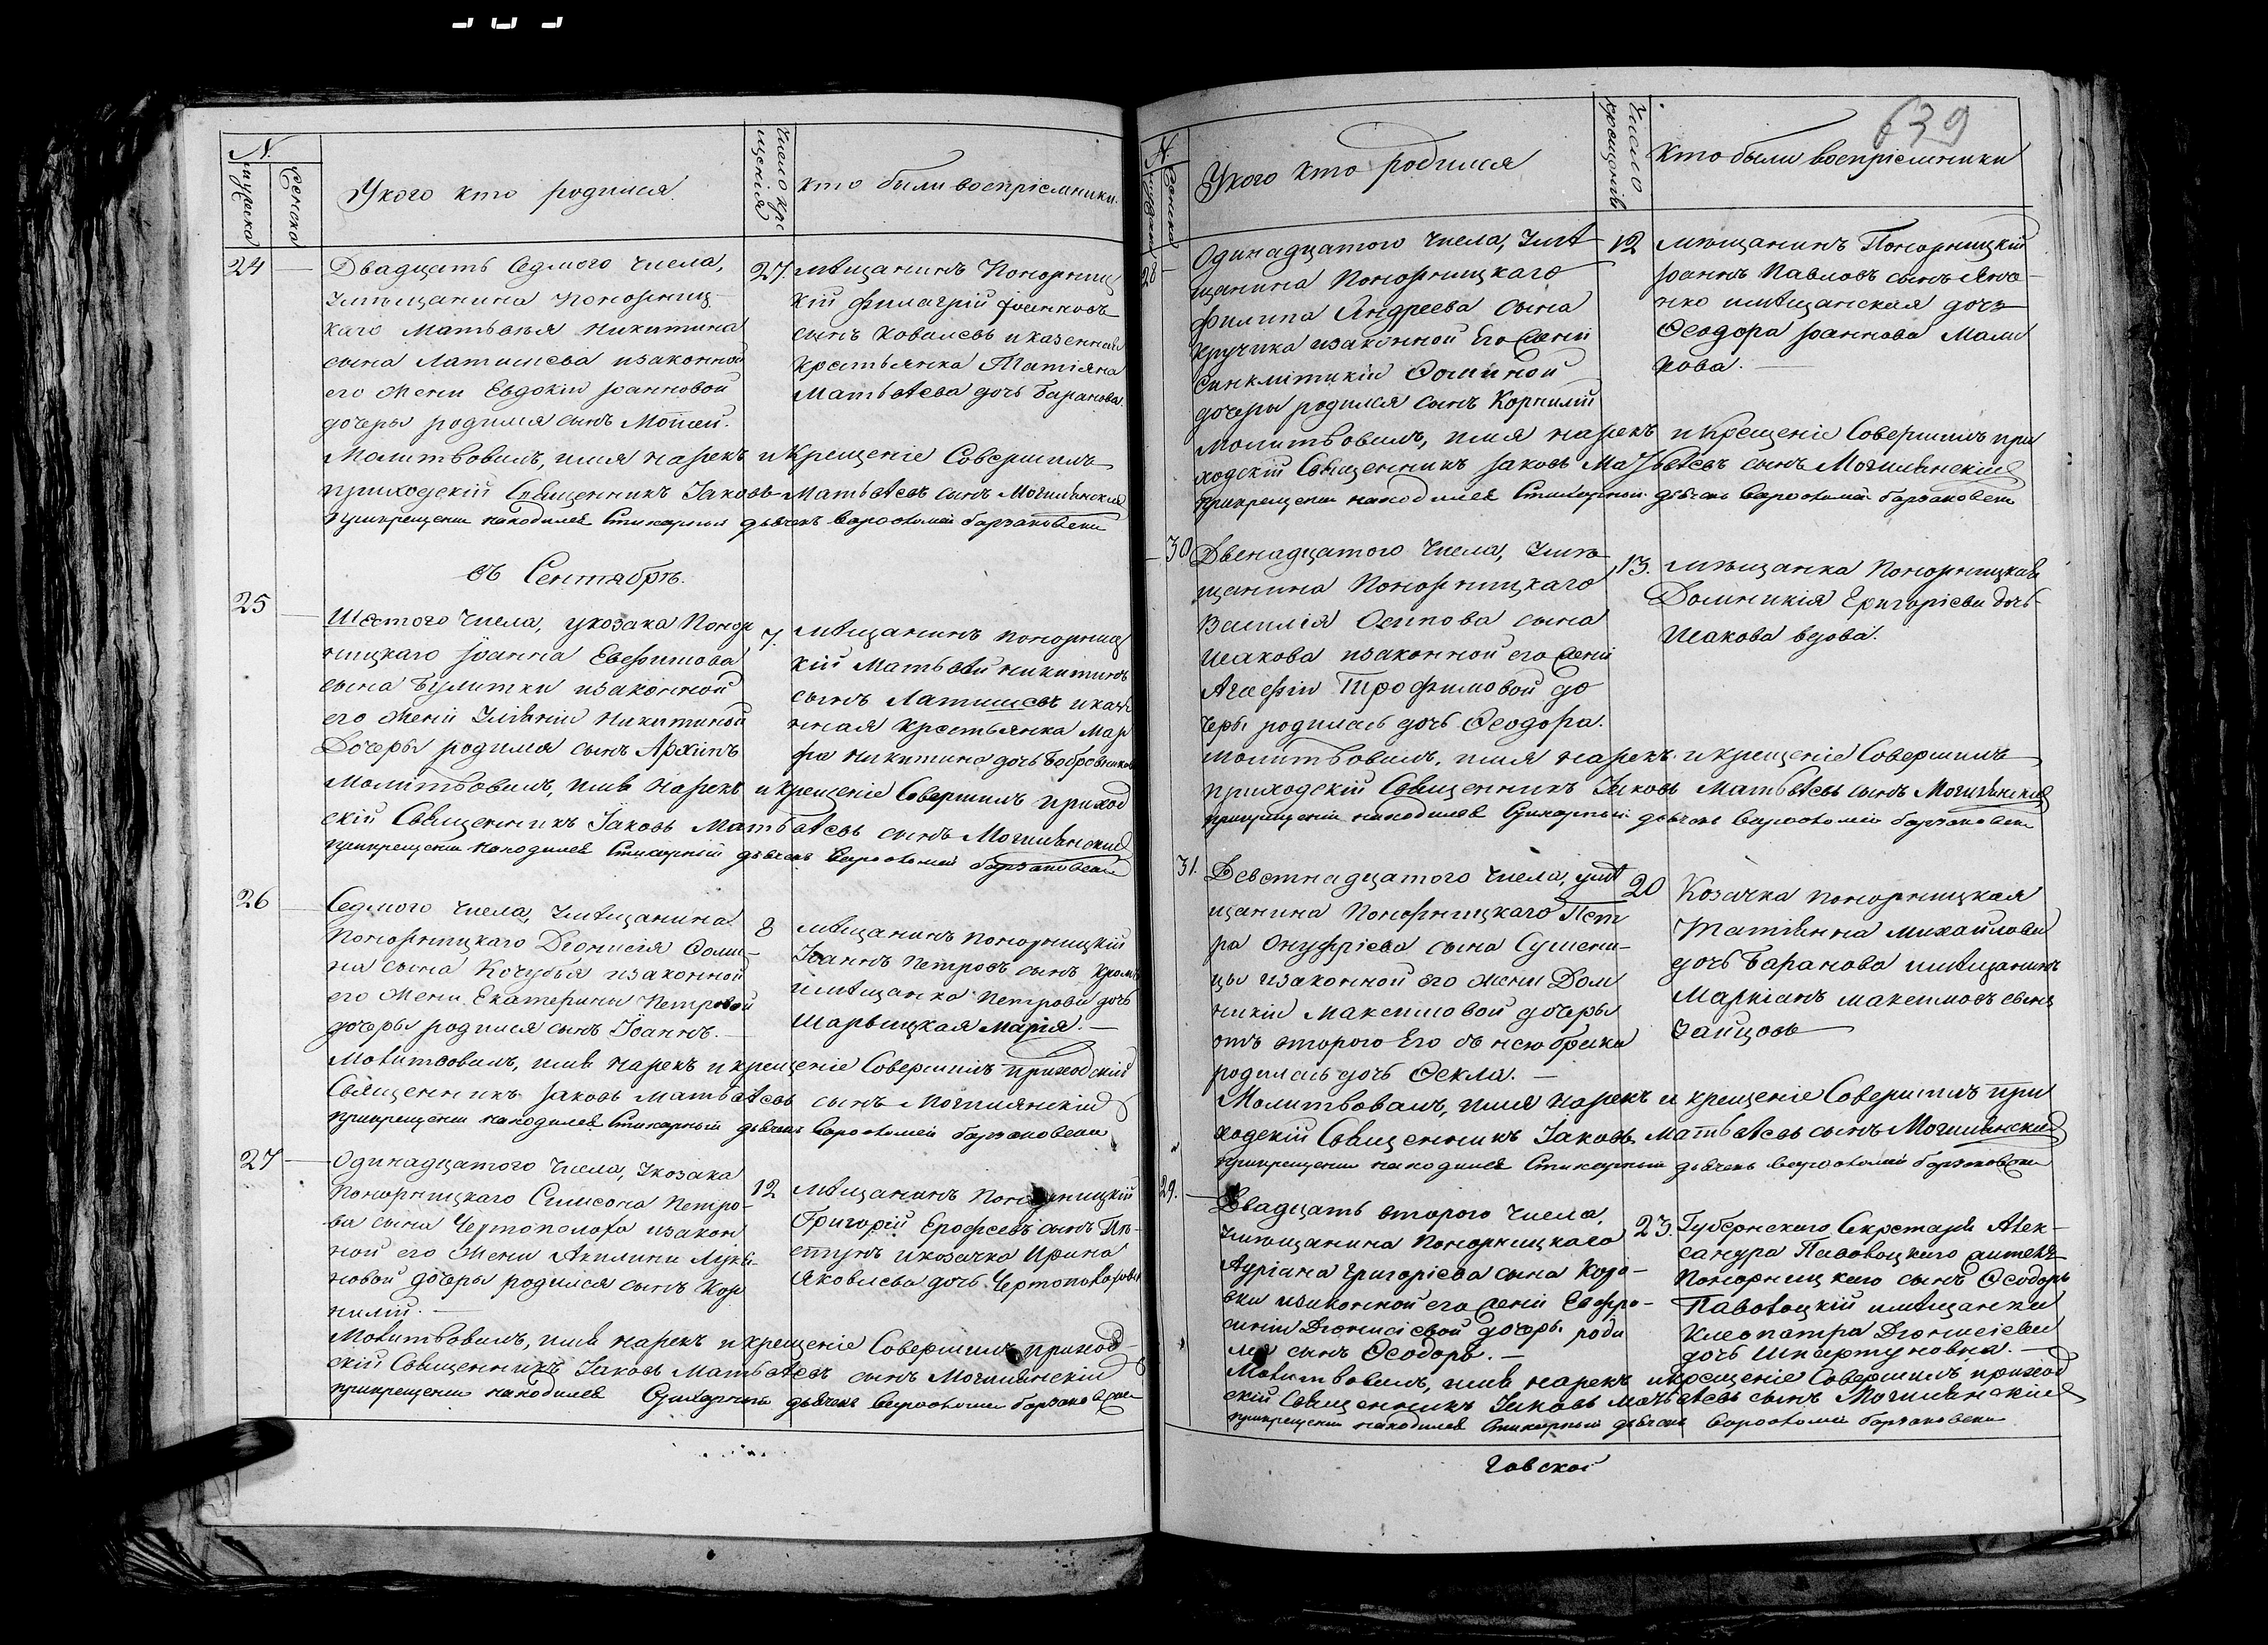 N.
мужеска
женска
У кого кто родился.
Число кре
щенія
кто были воспріемники.
24
Двадцать Седмого числа,
Умѣщанина Понорниц
каго Матѳея Никитина
сына Латишева изаконной
его Жени Евдокіи Іоанновой
дочеры родился сынъ Моѵсей.
27
мѣщанинъ Понорниц
кій Филагрій
сынъ Ковалевъ иказенная
крестьянка Татіяна
Матвѣева дочь Баранова.
Молитвовалъ, имя нарекъ икрещеніе Совершилъ
приходскій Священникъ Іаковъ Матвѣевъ сынъ Могилянскій
прикрещеніи находился Стихарный дьячекъ Варѳоломей Барзаковскій
въ Сентябрѣ.
25
Шестого числа, укозака Понор
ницкаго Іоанна Евѳимова
сына Булитки изаконной
его Жени Улияніи Никитиной
Дочеры родился сынъ Архипъ
7.
мѣщанинъ понорниц
кій Матвѣй Никитинъ
сынъ Латишевъ иказе
нная крестьянка Мар
фа Никитина дочь Бобровникова
Молитвовалъ, имя нарекъ икрещеніе Совершилъ приход
скій Священникъ Іаковъ Матвѣевъ сынъ Могилянскій
прикрещеніи находился Стихарный дьячекъ Варѳоломей Барзаковскій
26
Седмого числа, Умѣщанина
Понорницкаго Діонисія Ѳоми-
на сына Кочубѣя изаконной
его Жени Екатерини Петровой
дочеры родился сынъ Іоаннъ.
8
мѣщанинъ Понорницкій
Іоаннъ Петровъ сынъ
имѣщанка Петрова дочь
Шарыцкая Марія.
Молитвовалъ, имя нарекъ икрещеніе Совершилъ приходскій
Священникъ Іаковъ Матвѣевъ сынъ Могилянскій
прикрещеніи находился Стихарный дьячекъ Варѳоломей Барзаковскій
27
Одинадцатого числа, Укозака
Понорницкаго Симеона Петро-
ва сына Чертополоха изакон
ной его Жени Акилини Луки-
новой дочеры родился сынъ Кор
нилій.
12
мѣщанинъ Понорницкій
Григорій Ерофеевъ сынъ Пѣ-
стунъ икозачка Ирина
Яковлева дочь Чертополохова
Молитвовалъ, имя нарекъ икрещеніе Совершилъ приход-
скій Священникъ Іаковъ Матвѣевъ сынъ Могилянскій
прикрещеніи находился Стихарный дьячекъ Варѳоломей Барзаковскій
639
N.
мужеска
женска
У кого кто родился
Число
крещенія
Кто были воспріемники
28
Одинадцатого числа, Умѣ
щанина Понорницкаго
Филипа Андреева сына
Кручика изаконной Его Жени
Синклитикіи Ѳоминой
дочеры родился сынъ Корнилій
12
мѣщанинъ Понорницкій
Іоаннъ Павловъ сынъ Яно-
нко имѣщанская дочь
Ѳеодора Іоаннова Мали
кова.
Молитвовалъ, имя нарекъ икрещеніе Совершилъ при
ходскій Священникъ Іаковъ Матвѣевъ сынъ Могилянскій
прикрещеніи находился Стихарный дьячекъ Варѳоломей Барзаковскій
30
Двенадцатого числа, Умѣ
щанина Понорницкаго
Василія Осипова сына
Исакова изаконной его Жени
Агафіи Трофимовой до
черы родилась дочь Ѳеодора.
13.
мѣщанка Понорницкая
Доминикія Григоріева дочь
Исакова вдова.
Молитвовалъ, имя нарекъ икрещеніе Совершилъ
приходскій Священникъ Іаковъ Матвѣевъ сынъ Могилянскій
прикрещеніи находился Стихарный дьячекъ Варѳоломей Барзаковскій
31.
Деветнадцатого числа, умѣ
щанина Понорницкаго Пет
ра Онуфріева сына Сушени-
цы изаконной его жени Дом
никіи Максимовой дочеры
отъ второго Его съ нею брака
родилась дочь Ѳекла.
20
Козачка понорницкая
Татіянна михайлова
дочь Баранова имѣщанинъ
Маркіанъ максимовъ сынъ
Зайцовъ
Молитвовалъ, имя нарекъ и крещеніе Совершилъ при
ходскій Священникъ Іаковъ Матвѣевъ сынъ Могилянскій
прикрещеніи находился Стихарный дьячекъ Варѳоломей Барзаковскій
29.
Двадцать второго числа,
Умѣщанина Понорницкаго
Адріана Григоріева сына Козо-
вки изаконной его жени Евфро-
синіи Діонисіевой дочеры роди
лся сынъ Ѳеодоръ.
23.
Губернскаго Секретаря Алек-
сандра Паволоцкаго аптека
Понорницкаго сынъ Ѳеодоръ
Паволоцкій имѣщанка
Клеопатра Діонисіева
дочь Шкартуновна.
Молитвовалъ, имя нарекъ икрещеніе Совершилъ приход
скій Священникъ Іаковъ Матвѣевъ сынъ Могилянскій
прикрещеніи находился Стихарный дьячекъ Варѳоломей Барзаковскій
говской